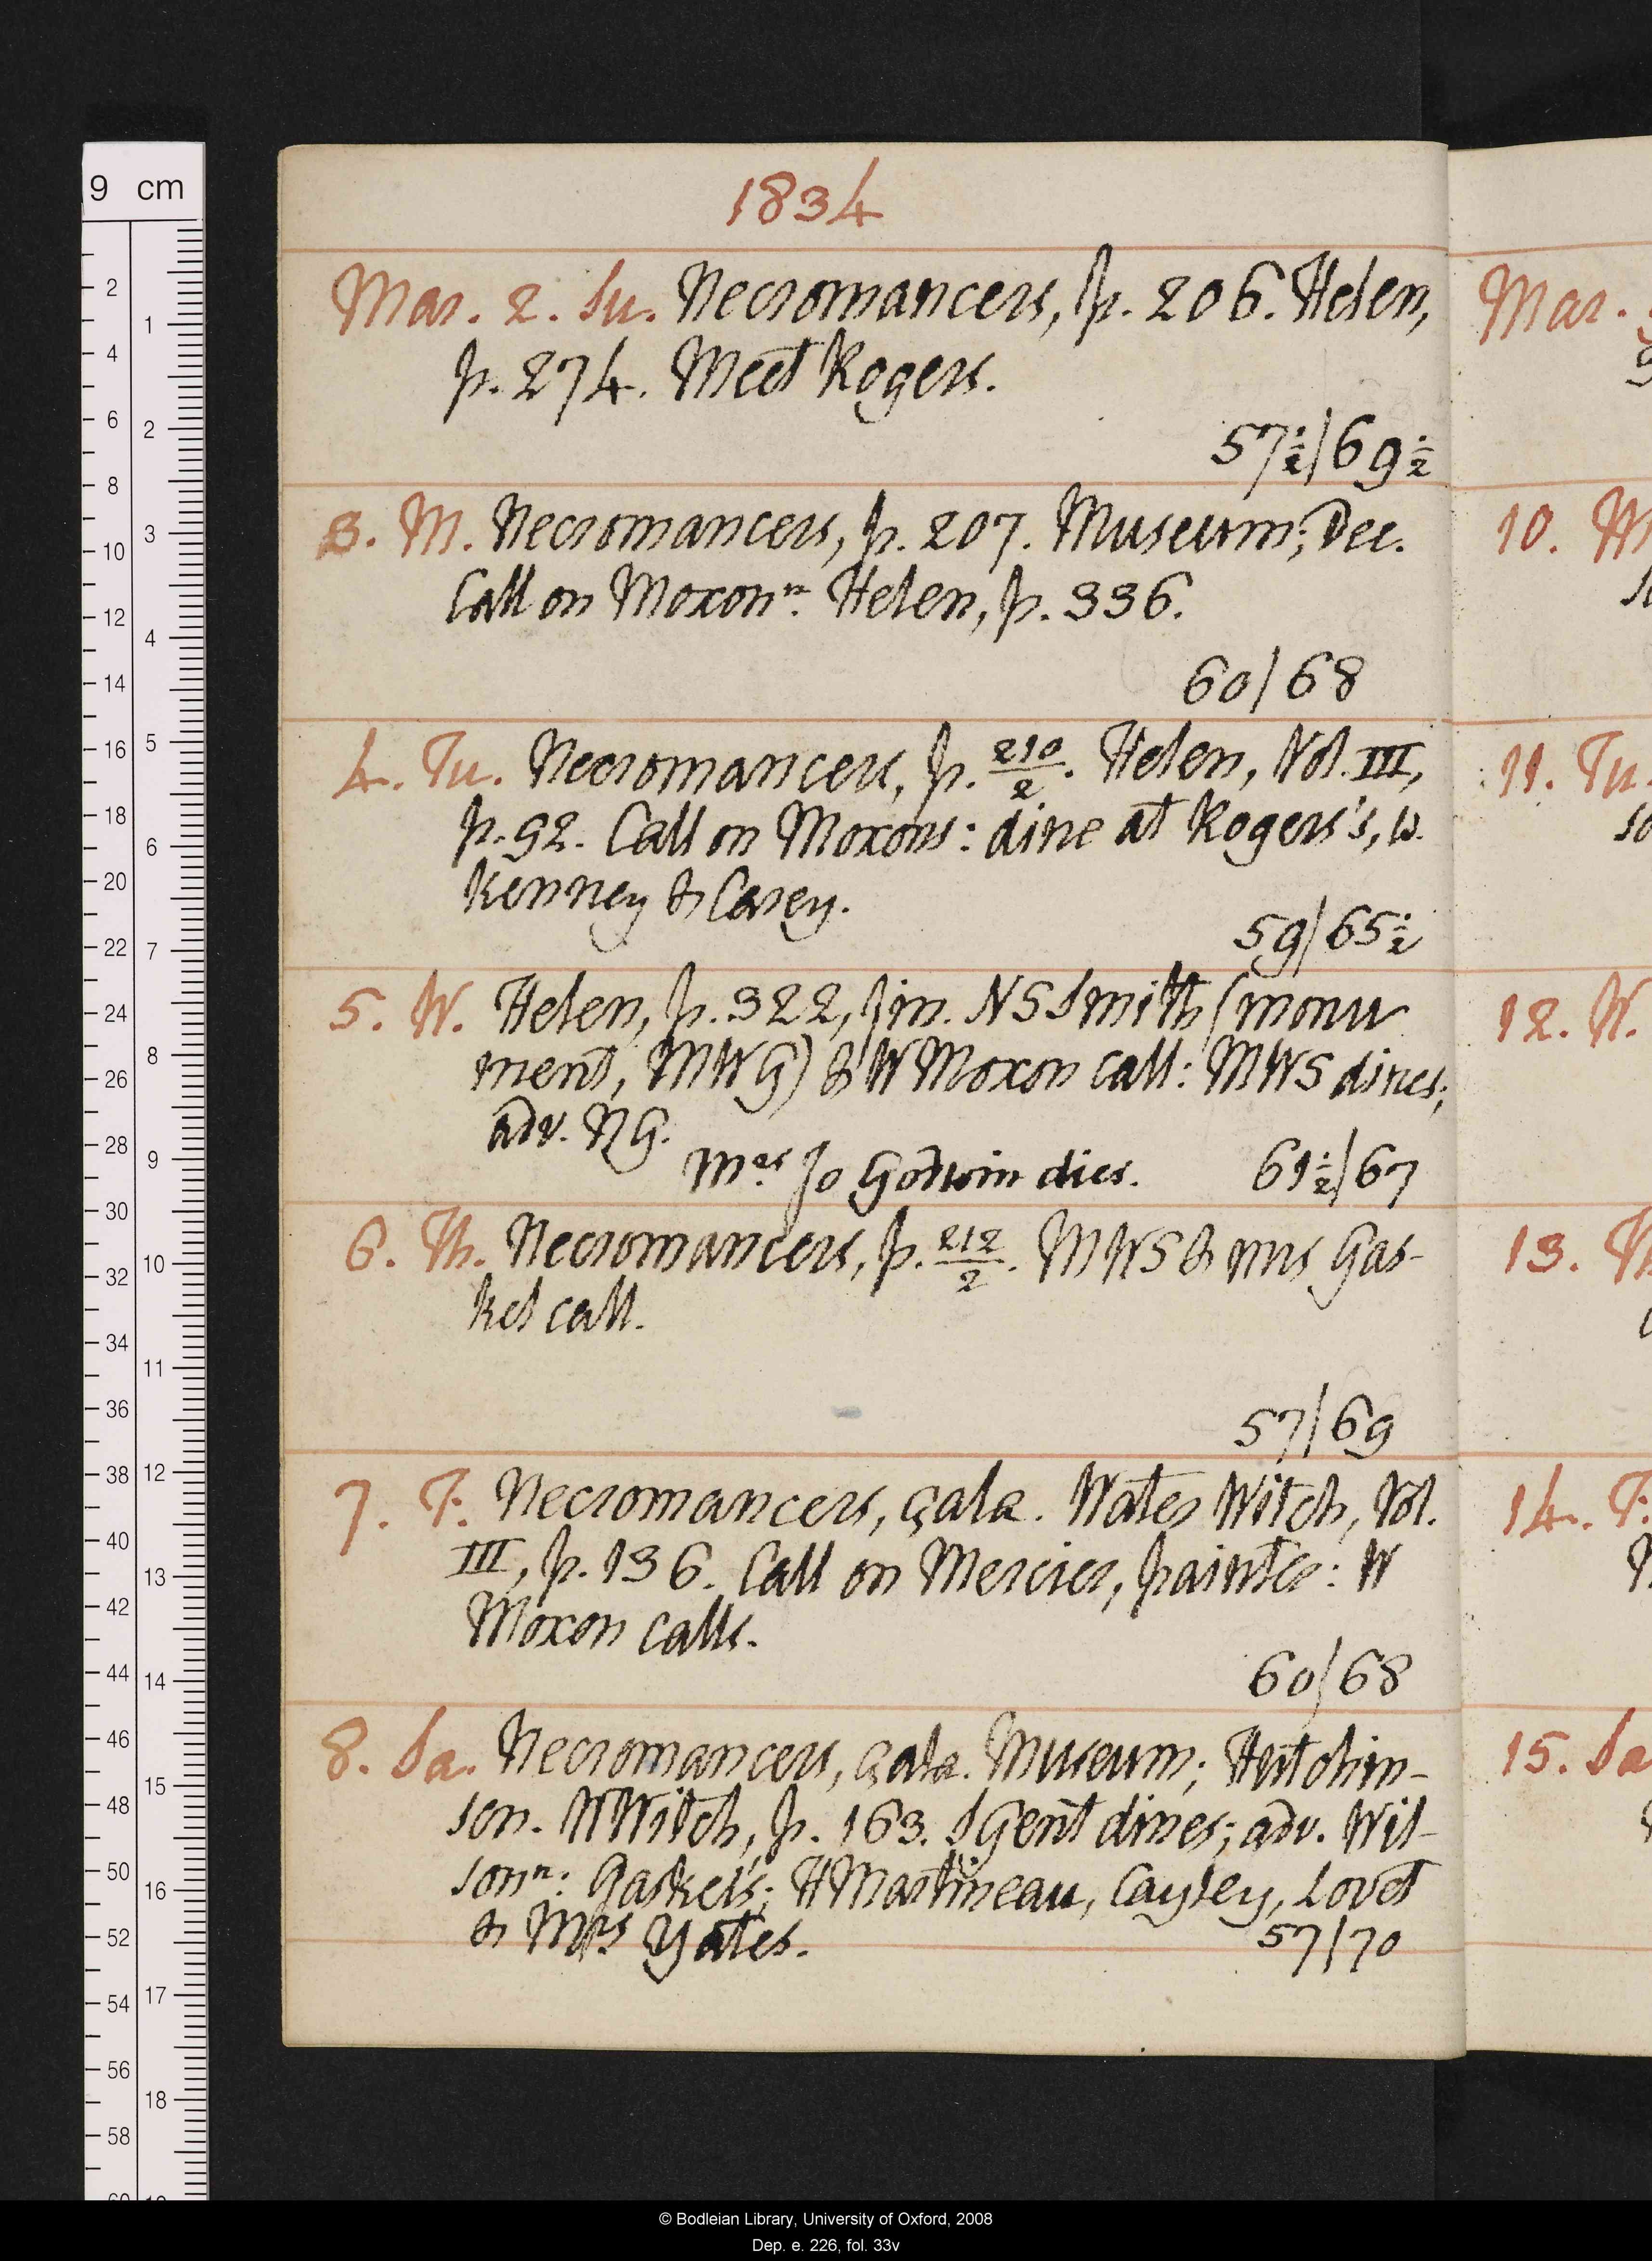 1834
Mar. 2. Su. Necromancers, p. 206. Helen,
p. 274. Meet Rogers.
57½/69½
3. M. Necromancers, p. 207. Museum; Dec.
Call on Moxonⁿ. Helen, p. 336.
60/68
4. Tu. Necromancers, p. 210/2. Helen, Vol. III,
p. 92. Call on Moxons: dine at Rogers's, w.
Kenney & Carey.
59/65½
5. W. Helen, p. 322, fin. NS Smith (monu
ment, MWG) & W Moxon call: MWS dines;
adv. NG.
Mrs Jo Godwin dies. 61½/67
6. Th. Necromancers, p. 212/2. MWS & mrs Gas-
kel call.
57/69
7. F. Necromancers, çala. Water Witch, Vol.
III, p. 136. Call on Mercier, painter: W
Moxon calls.
60/68
8. Sa. Necromancers, çala. Museum; Hutchin-
son. WWitch, p. 163. SGent dines; adv. Wil-
sonⁿ: Gaskel's; HMartineau, Cayley, Lovet
& Mrs Yates. 57/70
Mar.
10. M
11. Tu.
12. W.
13. Th
14. F.
15. Sa
9 cm
2
4
6
8
10
12
14
16
18
20
22
24
26
28
30
32
34
36
38
40
42
44
46
48
50
52
54
56
58
1
2
3
4
5
6
7
8
9
10
11
12
13
14
15
16
17
18
© Bodleian Library, University of Oxford, 2008
Dep. e. 226, fol. 33v